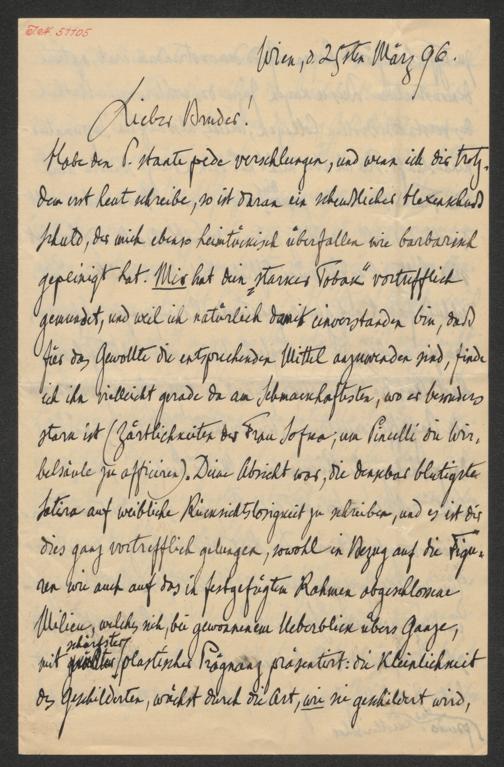 I.N. 51105
Wien, d. 25sten März 96.
Lieber Bruder!
Habe den P. stante pede verschlungen, und wenn ich dir trotz-
dem erst heut schreibe, so ist daran ein scheusslicher Hexenschuss
schuld, der mich ebenso heimtückisch überfallen wie barbarisch
gepeinigt hat. Mir hat dein „starker Tobak“ vortrefflich
gemundet, und weil ich natürlich damit einverstanden bin, dass
für das Gewollte die entsprechenden Mittel anzuwenden sind, finde
ich ihn vielleicht gerade da am Schmackhaftesten, wo er besonders
stark ist (Zärtlichkeiten der Frau Sofka; um Pincelli die Wir-
belsäule zu afficiren). Deine Absicht war, die denkbar blutigste
Satira auf weibliche Rücksichtslosigkeit zu schreiben, und es ist dir
dies ganz vortrefflich gelungen, sowohl in Bezug auf die Figu-
ren wie auch auf das in festgefügten Rahmen abgeschlossene
Milieu, welches sich, bei gewonnenem Ueberblick übers Ganze,
mit schärfster plastischer Prägnanz präsentirt: die Kleinlichkeit
des Geschilderten, wächst durch die Art, wie sie geschildert wird,